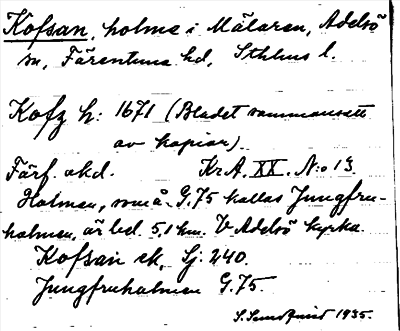 Kofsan, holme i Mälaren, Adelsö
sn, Färentuna hd, Sthlms l.
Kofz h: 1671 (Bladet sammansatt
av kopior)
Färf. akd. Kr.A. XX. N:o 13.
Holmen, som å G.75 kallas Jungfru-
holmen, är bel. 5,1 km. V Adelsö kyrka.
Kofsan ek. Lj. 240.
Jungfruholmen G.75.
S. Sundquist 1935.